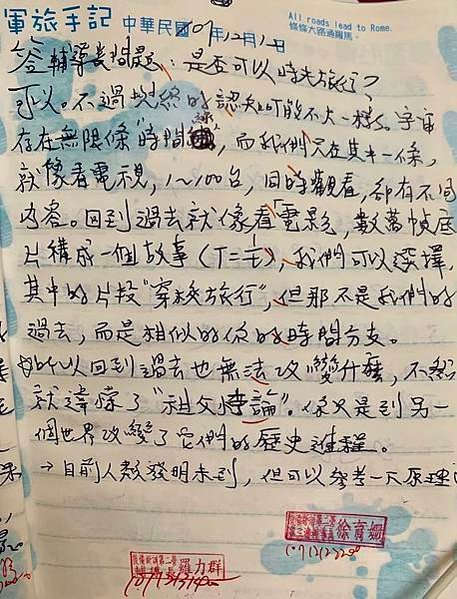 軍旅手記 中華民國107年12月12日 All roads lead to Rome. 條條大路通羅馬。
答輔導長問題：是否可以時光旅行？
可以。不過與你的認知可能不太一樣。宇宙
存在無限條"時間線"，而我們只在其中一條，
就像看電視，1～100台，同時觀看，卻有不同
內容。回到過去就像看「電影，數萬幀底
片構成一個故事（T=），我們可以選擇
其中的片段"穿梭旅行"，但那不是我們的
過去，而是相似的你的時間分支。
所以回到過去也無法改變什麼，不然
就違悖了"祖父悖論"。你只是到另一
個世界改變了它們的歷史進程。
→目前人類發明未到，但可以參考一下原理
徐育姍
羅力群